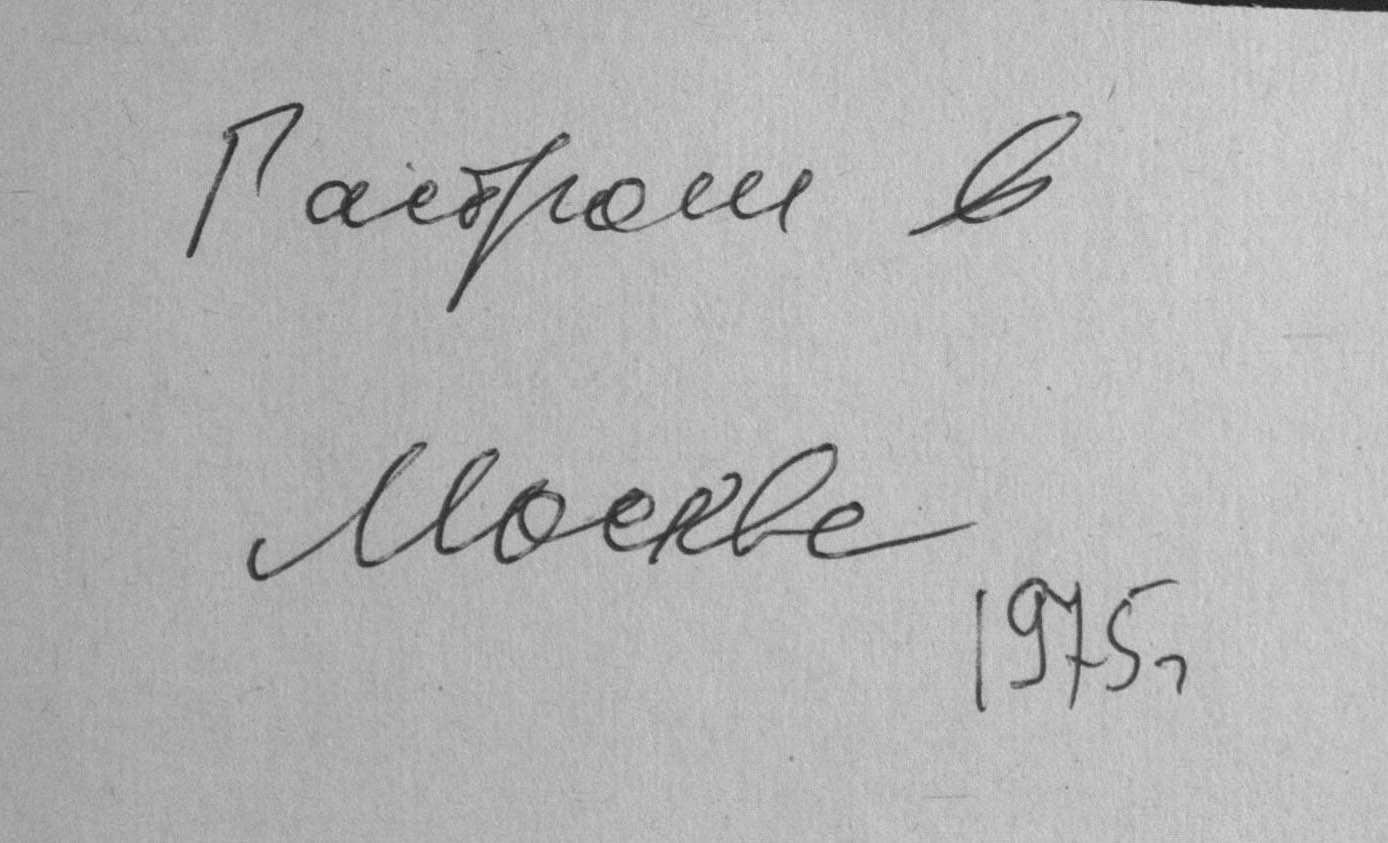 Гастроли в
Москве
1975г